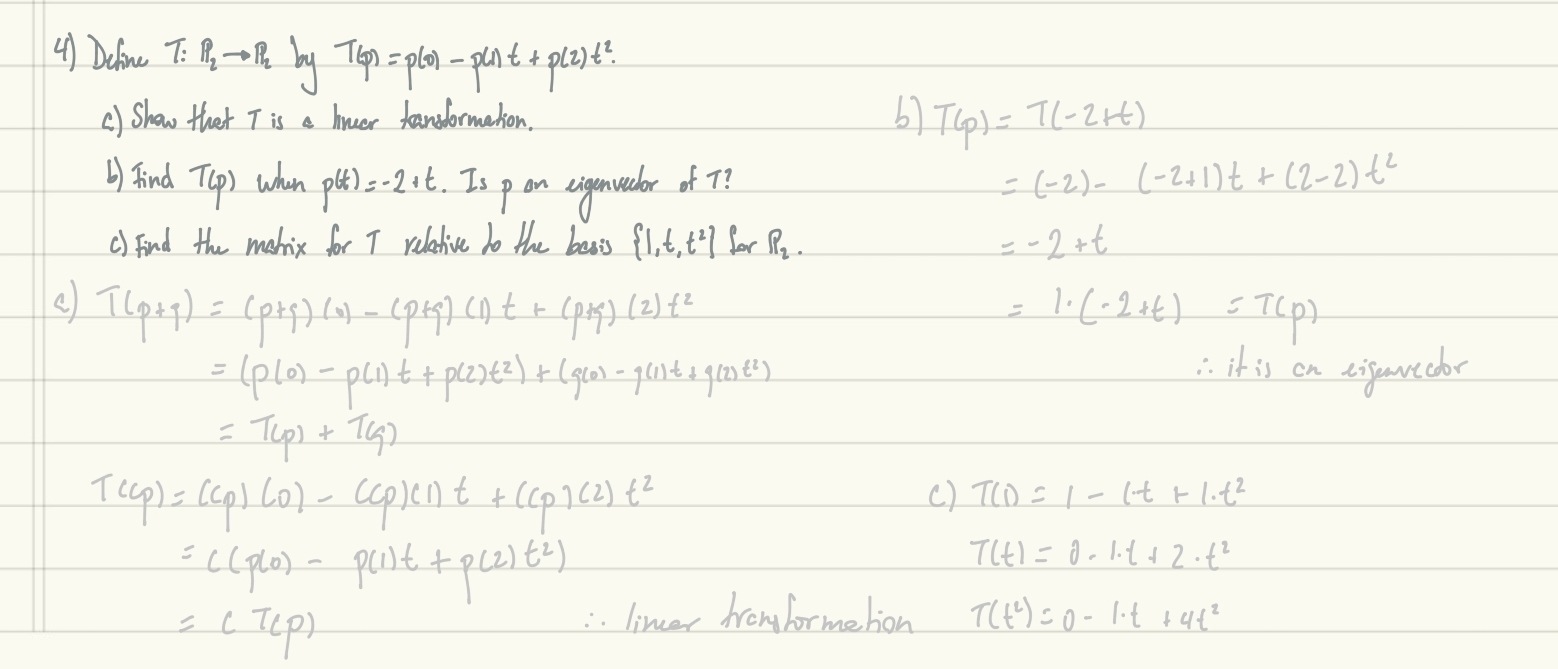 4) Define T: ℙ₂→ℙ₂ by T(p) = p(0) - p(1)t + p(2)t².
a) Show that T is a linear transformation.
b) Find T(p) when p(t) = -2+t. Is p an eigenvector of T?
c) Find the matrix for T relative to the basis {1,t,t²} for ℙ₂.
a) T(p+q) = (p+q)(0) - (p+q)(1)t + (p+q)(2)t²
= (p(0) - p(1)t + p(2)t²) + (q(0) - q(1)t + q(2)t²)
= T(p) + T(q)
T(cp) = (cp)(0) - (cp)(1)t + (cp)(2)t²
= c(p(0) - p(1)t + p(2)t²)
= c T(p) ∴ linear transformation
b) T(p) = T(-2+t)
= (-2) - (-2+1)t + (2-2)t²
= -2+t
= 1·(-2+t) = T(p)
∴ it is an eigenvector
c) T(1) = 1 - 1·t + 1·t²
T(t) = 0 - 1·t + 2·t²
T(t²) = 0 - 1·t + 4t²